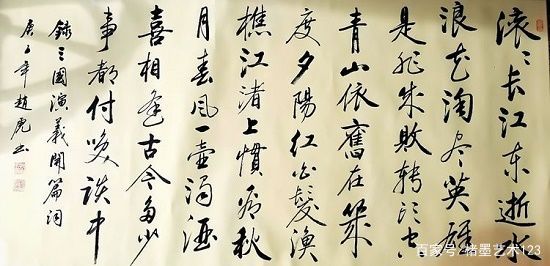 滚々长江东逝水
浪花淘尽英雄
是非成败转头空
青山依舊在几
度夕陽红白髮渔
樵江渚上慣看秋
月春风一壶浊酒
喜相逢古今多少
事都付笑谈中
錄三國演義開篇词
庚子年趙虎书
百家号/墨艺术123